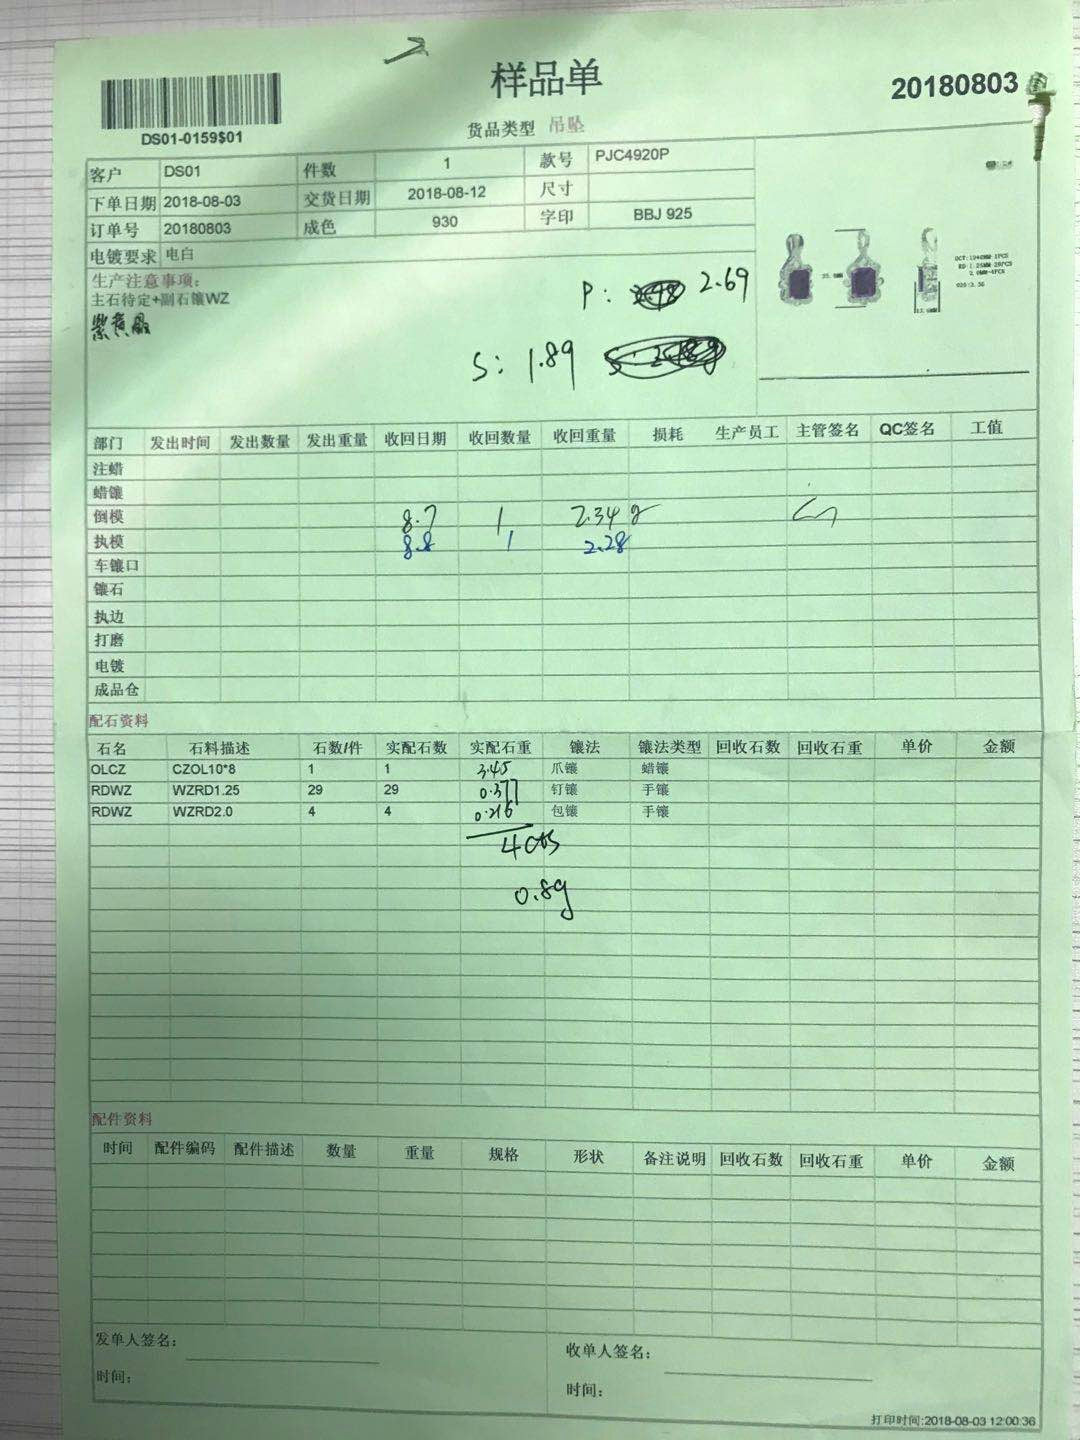 样品单
20180803
DS01-0159$01
货品类型 吊坠
客户 DS01 件数 1 款号 PJC4920P
下单日期 2018-08-03 交货日期 2018-08-12 尺寸
订单号 20180803 成色 930 字印 BBJ 925
电镀要求 电白
生产注意事项：
主石待定+副石镶WZ
紫黄晶
P: 2.69
S: 1.89
部门 发出时间 发出数量 发出重量 收回日期 收回数量 收回重量 损耗 生产员工 主管签名 QC签名 工值
注蜡
蜡镶
倒模 8.7 1 2.34 g
执模 8.8 1 2.28
车镶口
镶石
执边
打磨
电镀
成品仓
配石资料
石名 石料描述 石数/件 实配石数 实配石重 镶法 镶法类型 回收石数 回收石重 单价 金额
OLCZ CZOL10*8 1 1 3.45 爪镶 蜡镶
RDWZ WZRD1.25 29 29 0.377 钉镶 手镶
RDWZ WZRD2.0 4 4 0.216 包镶 手镶
4cts
0.8g
配件资料
时间 配件编码 配件描述 数量 重量 规格 形状 备注说明 回收石数 回收石重 单价 金额
发单人签名：
收单人签名：
时间：
时间：
打印时间:2018-08-03 12:00:36